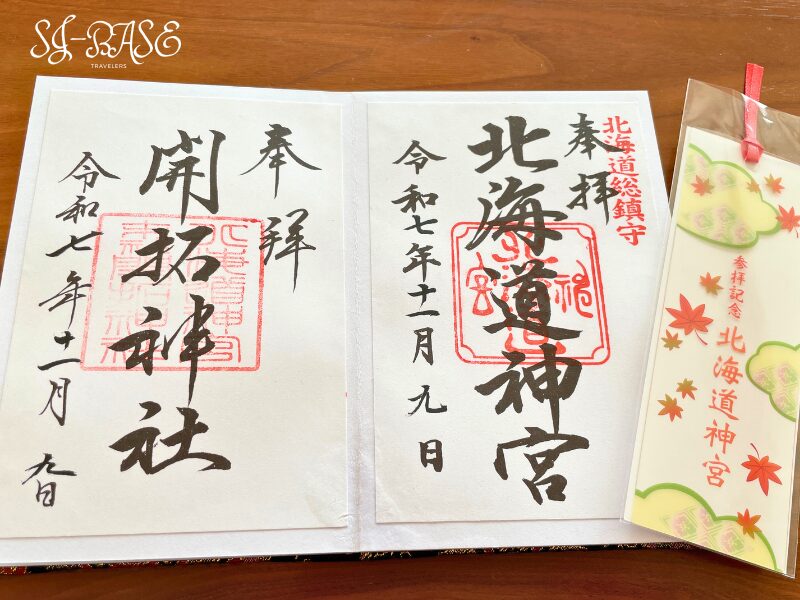 SJ-BASE
TRAVELERS
奉拜
開拓神社
令和七年十一月九日
北海道総鎮守
奉拝
北海道神宮
令和七年十一月九日
参拝記念
北海道神宮